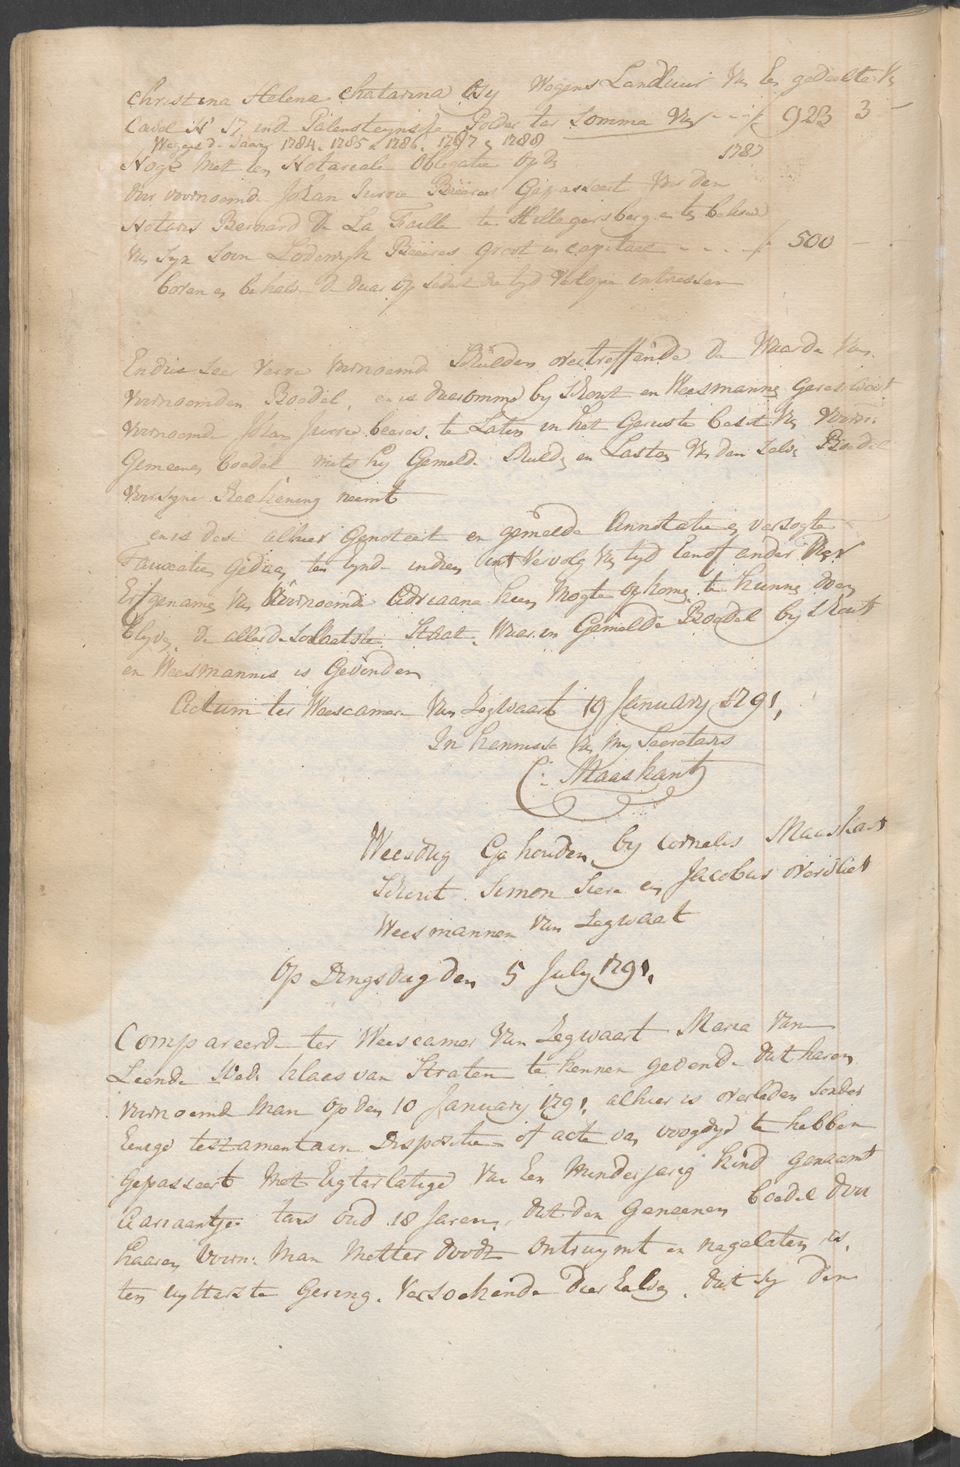 Christina Helena Chatarina Osy Wegens Landhuir Van Een gedeelte Vn
Cavel No 17 in d Palensteynsche Polder ter Somma Van - - - ƒ 923 3 —
Wegens de Jaaren 1784. 1785. 1786. 1787 & 1788
Nogh Met een Notariale Obligatie op den 1787
door voornoemde Johan Jurrie Beeres Gepasseert Voor den
Notaris Bernard De La Faille te Hillegersberg en ten behoeve
Van Syn Soon Lodewyk Beeres Groot in capitaal - - - - ƒ 500 —
boven en behalve de daar op sedert die tyd Verlopen intressen
En dus seer verre voornoemde Schulden overtreffende de Waarde Van
voornoemden Boedel, en is daaromme by Schout en Weesmannen Geresolveert
voornoemde Johan Jurrie beeres te Laten in het Geruste besit Van voorn:
Gemeenen boedel mits hy Gemelde Schulden en Lasten Van den selven Boedel
voor syne Reekening neemt
en is dese alhier Genoteert en gemelde Annotatie en versogte
Tauxatie Gedien ten eynde indien int Vervolg Van tyd Een of ander Van
Erfgenamen Van Voornoemde Adriaana hier Mogte opkomen te kunnen doen
blyken de allesde Slechtste Staat, Waar in Gemelde Boedel by Schout
en Weesmannen is Gevonden
Actum ter Weescamer Van Zegwaart 19 January 1791,
In kennisse Van My Secretaris
C: Maaskant
Weesdag Gehouden by Cornelis Maaskant
Schout Simon Siere en Jacobus overvliet
Weesmannen Van Zegwaart
Op Dingsdag den 5 July 1791.
Compareerde ter Weescamer Van Zegwaart Maria Van
Leende Wede Klaes van Straten te kennen gevende dat haren
voornoemde Man op den 10 January 1791. alhier is overleden sonder
Eenige testamentaire Dispositie of acte van voogdye te hebben
Gepasseert Met Agterlatinge Van Een Minderjarig kind genaamt
Ariaantje tans oud 18 Jaren, dat den Gemeenen boedel door
haaren Voorn: Man Metter doodt ontruymt en nagelaten is.
ten uytterste Gering. Versoekende dierhalve, dat sy den